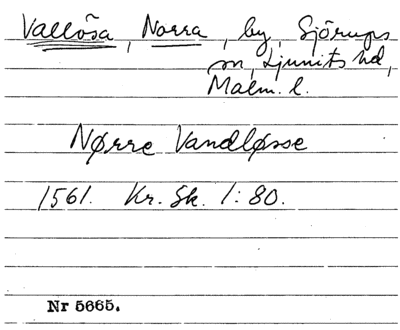 Vallösa, Norra, by, Sjörups
sn, Ljunits hd,
Malm. l.
Nørre Vandløsse
1561. Kr. Sk. 1:80.
Nr 5665.